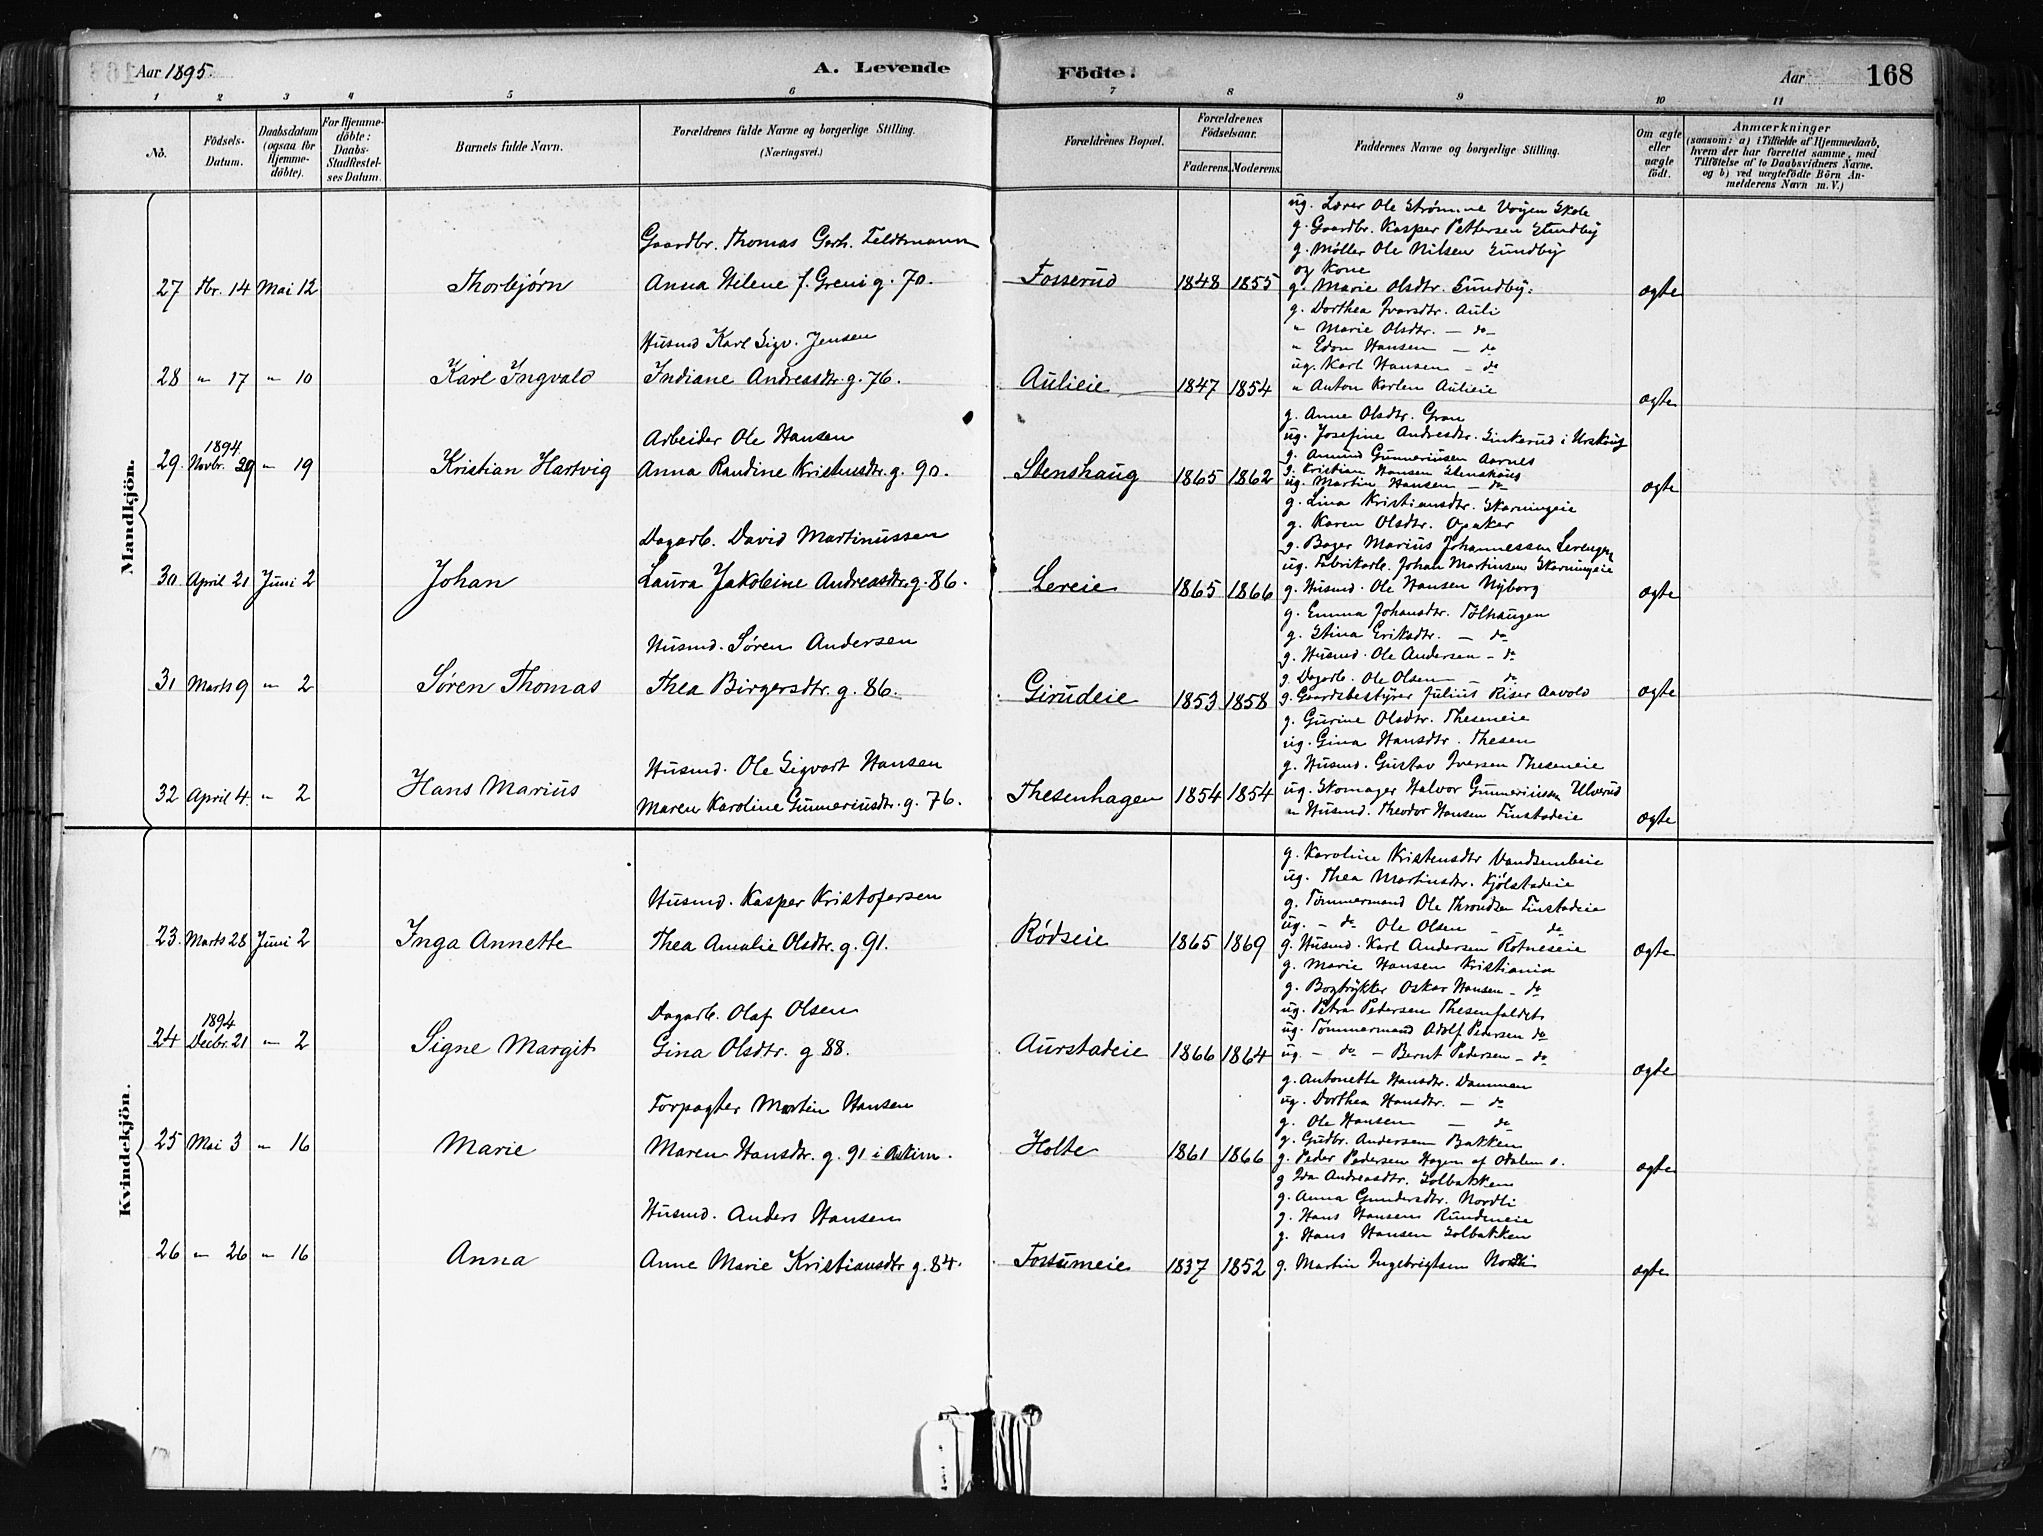 Aar 1895. A. Levende Födte. Aar 168
1 2 3 4 5 6 7 8 9 10 11
No. Födsels-Datum. Daabsdatum (ogsaa for Hjemme-döbte). For Hjemme-döbte: Daabs-Stadfæstel-ses Datum. Barnets fulde Navn. Forældrenes fulde Navne og borgerlige Stilling. (Næringsvei.) Forældrenes Bopæl. Forældrenes Födselsaar. Faderens. Moderens. Faddernes Navne og borgerlige Stilling. Om ægte eller uægte födt. Anmærkninger (saasom: a) i Tilfælde af Hjemmedaab, hvem der har forrettet samme, med Tilföielse af to Daabsvidners Navne, og b) ved uægtefödte Börn An-melderens Navn m. V.)
Mandkjön.
ug. Lærer Ole Strømme Vøyen Skole
Gaardbr. Thomas Gerh. Feldtmann g. Gaardbr. Kasper Pettersen Sundby
g. Møller Ole Nilsen Sundby
og Kone
27 Fbr. 14 Mai 12 Thorbjørn Anna Helene f. Greni g. 70. Fosserud 1848 1855 g. Marie Olsdtr. Sundby. ægte
g. Dorthea Ivarsdtr. Auli
" Marie Olsdtr. — do
Husmd Karl Sigv. Jensen " Edon Hansen — do
ug. Karl Hansen — do
28 " 17 " 10 Karl Ingvald Indiane Andreasdtr. g. 76. Aulieie 1847 1854 " Anton Karlen Aulieie ægte
g. Anne Olsdtr. Gran
Arbeider Ole Hansen ug. Josefine Andresdtr. Sinkerud i Urskoug
g. Amund Gunneriusen Aarnes
29. 1894 Novbr. 29 " 19 Kristian Hartvig Anna Randine Kristensdtr. g. 90. Stenshaug 1865 1862 g. Kristian Hansen Stenshaug ægte
ug. Martin Hansen — do
g. Lina Kristiansdtr. Skarningeie
g. Karen Olsdtr. Opaker
Dagarb. David Martinussen g. Bager Marius Johannessen
ug. Fabrikarb. Johan Martinsen Skarningeie
30 April 21 Juni 2 Johan Laura Jakobine Andreasdtr. g. 86. Lereie 1865 1866 g. Husmd. Ole Hansen Nyborg ægte
g. Emma Johansdtr. Tolhaugen
Husmd. Søren Andersen g. Stina Eriksdtr. — do
g. Husmd. Ole Andersen — do
g. Dagarb. Ole Olsen — do
31 Marts 9 " 2 Søren Thomas Thea Birgersdtr. g. 86. Girudeie 1853 1858 g. Gaardsbestyrer Julius Riser Aavold ægte
g. Gurine Olsdtr. Theseneie
ug. Gina Hansdtr. Thesen
Husmd. Ole Sigvart Hansen g. Husmd. Gustav Iversen Theseneie
32 April 4. " 2 Hans Marius Maren Karoline Gunneriusdtr. g. 76. Thesenhagen 1854 1854 ug. Skomager Halvor Gunneriussen Ulverud ægte
" Husmd. Theodor Hansen Finstadeie
Kvindekjön.
g. Karoline Kristensdtr Vandsembeie
ug. Thea Martinsdtr. Kjølstadeie
Husmd. Kasper Kristofersen g. Tømmermand Ole Throndsen Finstadeie
ug. — do Ole Olsen — do
23. Marts 28 Juni 2 Inga Annette Thea Amalie Olsdtr. g. 91. Rødseie 1865 1869 g. Husmd. Karl Andersen Rotneseie ægte
g. Marie Hansen Kristiania
g. Bogtrykker Oskar Hansen — do
Dagarb. Olaf Olsen ug. Petra Pedersen Thesenfaldet
ug. Tømmermand Adolf Pedersen do
24 1894 Decbr. 21 " 2 Signe Margit Gina Olsdtr. g 88. Aurstadeie 1866 1864 ug. — do — Bernt Pedersen — do ægte
g. Antonette Hansdtr. Dammen
Forpagter Martin Hansen ug. Dorthea Hansdtr. — do
g. Ole Hansen — do
25 Mai 3 " 16 Marie Maren Hansdtr. g. 91 i Askim. Holte 1861 1866 g. Gudbr. Andersen Bakken ægte
g. Peder Pedersen Hagen af Odalen s.
g Ida Andreasdtr. Solbakken
g. Anna Gundersdtr. Nordli
Husmd. Anders Hansen g. Hans Hansen Rundeneie
g. Hans Hansen Solbakken
26 " 26 " 16 Anna Anne Marie Kristiansdtr g. 84. Fossumeie 1837 1852 g. Martin Ingebrigtsen Nordli ægte